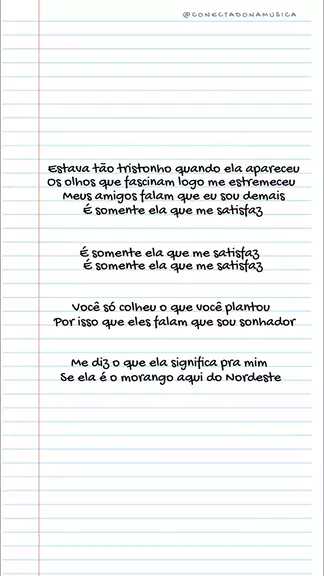 @CONECTADONAMUSICA
Estava tão tristonho quando ela apareceu
Os olhos que fascinam logo me estremeceu
Meus amigos falam que eu sou demais
É somente ela que me satisfaz
É somente ela que me satisfaz
É somente ela que me satisfaz
Você só colheu o que você plantou
Por isso que eles falam que sou sonhador
Me diz o que ela significa pra mim
Se ela é o morango aqui do Nordeste